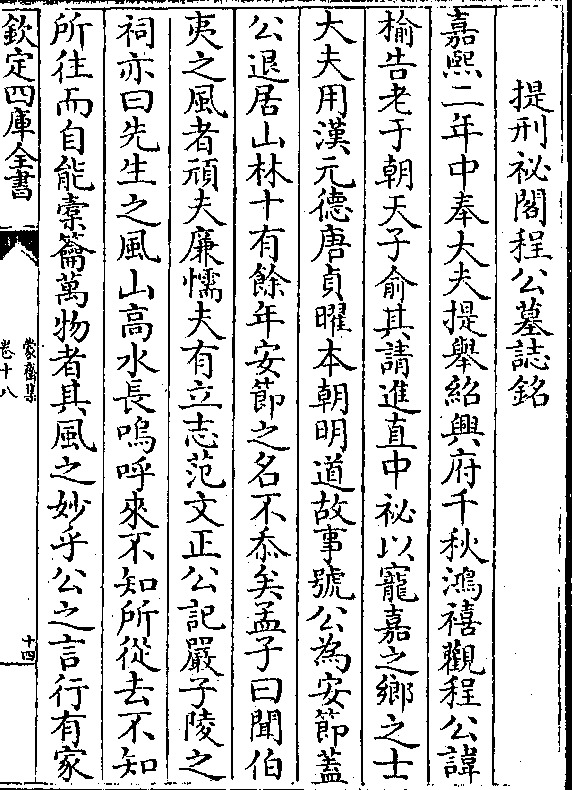 提刑祕閣程公墓誌銘
嘉熙二年中奉大夫提舉紹興府千秋鴻禧觀程公諱
榆告老于朝天子俞其請進直中祕以寵嘉之鄉之士
大夫用漢元德唐貞曜本朝明道故事號公為安節蓋
公退居山林十有餘年安節之名不忝矣孟子曰聞伯
夷之風者頑夫廉懦夫有立志范文正公記嚴子陵之
祠亦曰先生之風山高水長嗚呼來不知所從去不知
所往而自能橐籥萬物者其風之妙乎公之言行有家
欽定四庫全書
蒙齋集
卷十八
十四